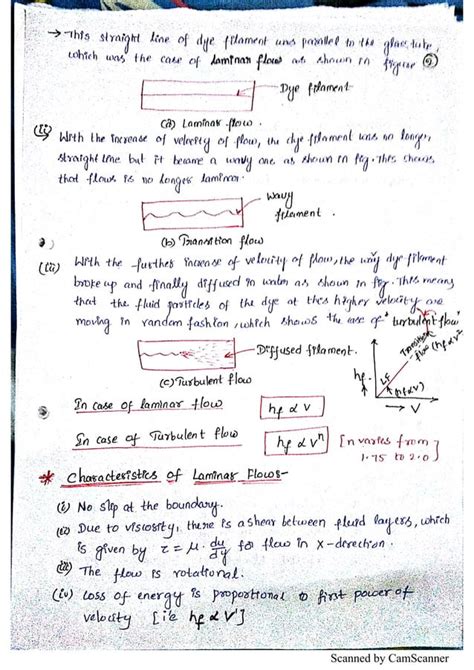 → This straight line of dye filament was parallel to the glass tube,
which was the case of laminar flow as shown in figure (a)
Dye filament
(a) Laminar flow.
(ii) With the increase of velocity of flow, the dye filament was no longer,
straight line but it became a wavy one as shown in fig. This shows
that flow is no longer laminar.
wavy
filament.
(b) Transition flow
(iii) With the further increase of velocity of flow, the wavy dye filament
broke up and finally diffused in water as shown in fig. This means
that the fluid particles of the dye at this higher velocity are
moving in random fashion, which shows the case of 'turbulent flow'
Diffused filament.
(c) Turbulent flow
hf
LF
(hf∝V)
Transition
flow (hf∝V²
→ V
In case of laminar flow hf ∝ V
In case of Turbulent flow hf ∝ Vⁿ [n varies from
1.75 to 2.0]
* Characteristics of Laminar Flows-
(i) No slip at the boundary.
(ii) Due to viscosity, there is a shear between fluid layers, which
is given by τ = μ. du/dy for flow in X-direction.
(iii) The flow is rotational.
(iv) Loss of energy is proportional to first power of
velocity [i.e hf ∝ V']
Scanned by CamScanner